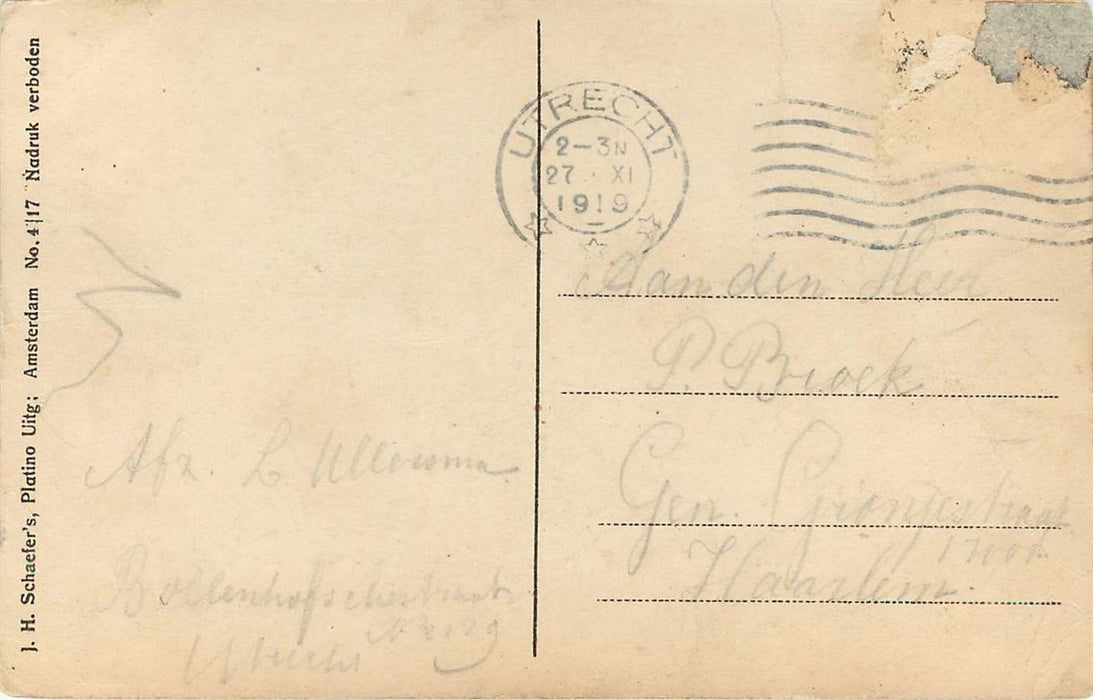 J. H. Schaefer's, Platino Uitg; Amsterdam No. 4|17 Nadruk verboden
UTRECHT
2-3N
27 XI
1919
Aan den Heer
P. Broek
Gen. Cronjéstraat
Haarlem.
Afz. L Ullersma
Bollenhofschestraat
Utrecht